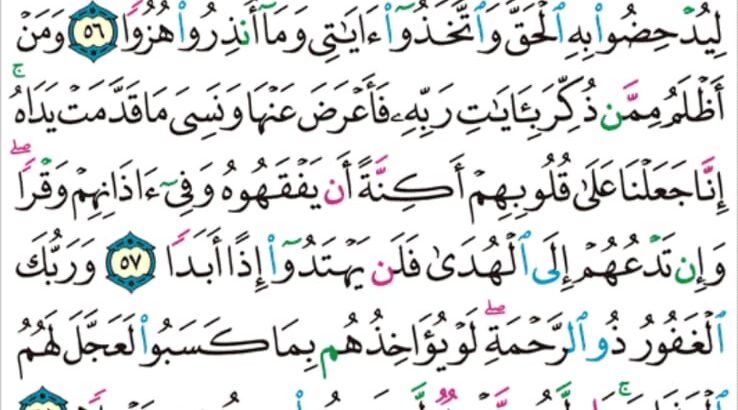 لِيُدْحِضُوا۟ بِهِ ٱلْحَقَّ وَٱتَّخَذُوٓا۟ ءَايَـٰتِى وَمَآ أُنذِرُوا۟ هُزُوًا ٥٦ وَمَنْ
أَظْلَمُ مِمَّن ذُكِّرَ بِـَٔايَـٰتِ رَبِّهِۦ فَأَعْرَضَ عَنْهَا وَنَسِىَ مَا قَدَّمَتْ يَدَاهُ ۚ
إِنَّا جَعَلْنَا عَلَىٰ قُلُوبِهِمْ أَكِنَّةً أَن يَفْقَهُوهُ وَفِىٓ ءَاذَانِهِمْ وَقْرًا ۖ
وَإِن تَدْعُهُمْ إِلَى ٱلْهُدَىٰ فَلَن يَهْتَدُوٓا۟ إِذًا أَبَدًا ٥٧ وَرَبُّكَ
ٱلْغَفُورُ ذُو ٱلرَّحْمَةِ ۖ لَوْ يُؤَاخِذُهُم بِمَا كَسَبُوا۟ لَعَجَّلَ لَهُمُ